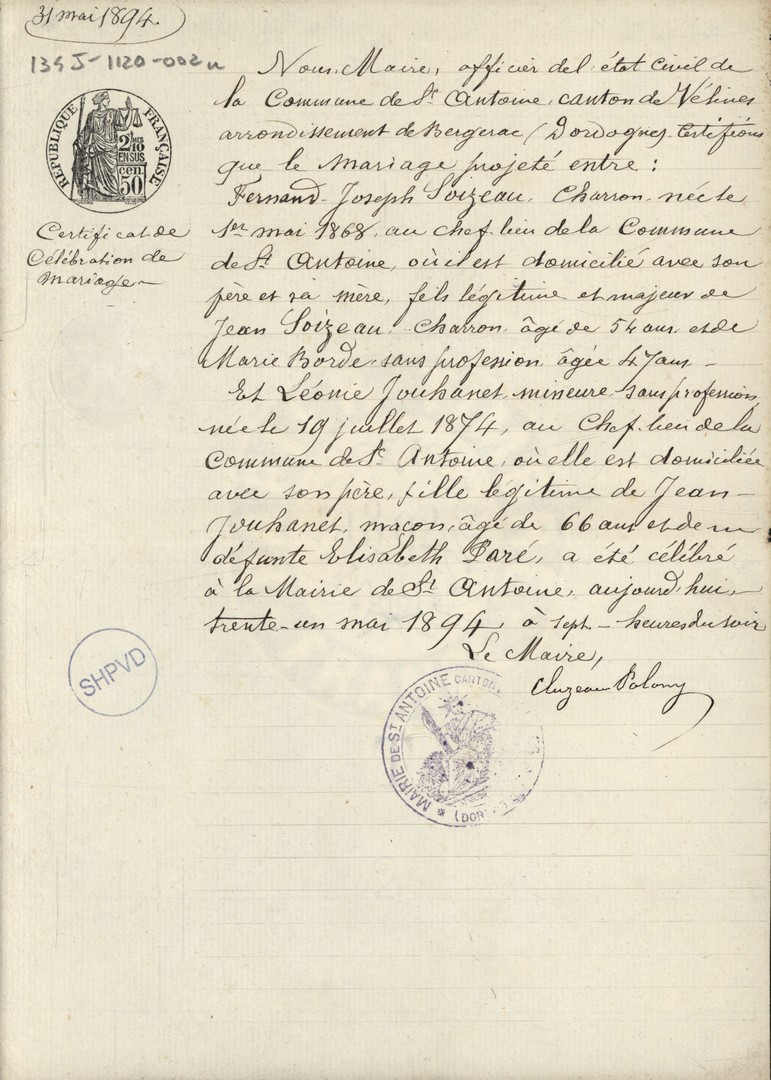 31 mai 1894.
134 J-1120-002
RÉPUBLIQUE FRANÇAISE
2/10 EN SUS
cen. 50
Certificat de
Célébration de
mariage
Nous, Maire, officier de l'état civil de
la Commune de St Antoine, canton de Vélines
arrondissement de Bergerac (Dordogne) Certifions
que le mariage projeté entre :
Fernand Joseph Soizeau, Charron, né le
1er mai 1868, au chef-lieu de la Commune
de St Antoine, où il est domicilié avec son
père et sa mère, fils légitime et majeur de
Jean Soizeau, Charron, âgé de 54 ans et de
Marie Borde, sans profession, âgée 47 ans
Et Léonie Jouhanet, mineure, sans profession,
née le 19 juillet 1874, au Chef-lieu de la
Commune de St Antoine, où elle est domiciliée
avec son père, fille légitime de Jean
Jouhanet, maçon, âgé de 66 ans et de
défunte Elisabeth Paré, a été célébré
à la Mairie de St Antoine, aujourd'hui
trente-un mai 1894, à sept heures du soir
Le Maire,
SHPVD
MAIRIE DE ST ANTOINE CANTON